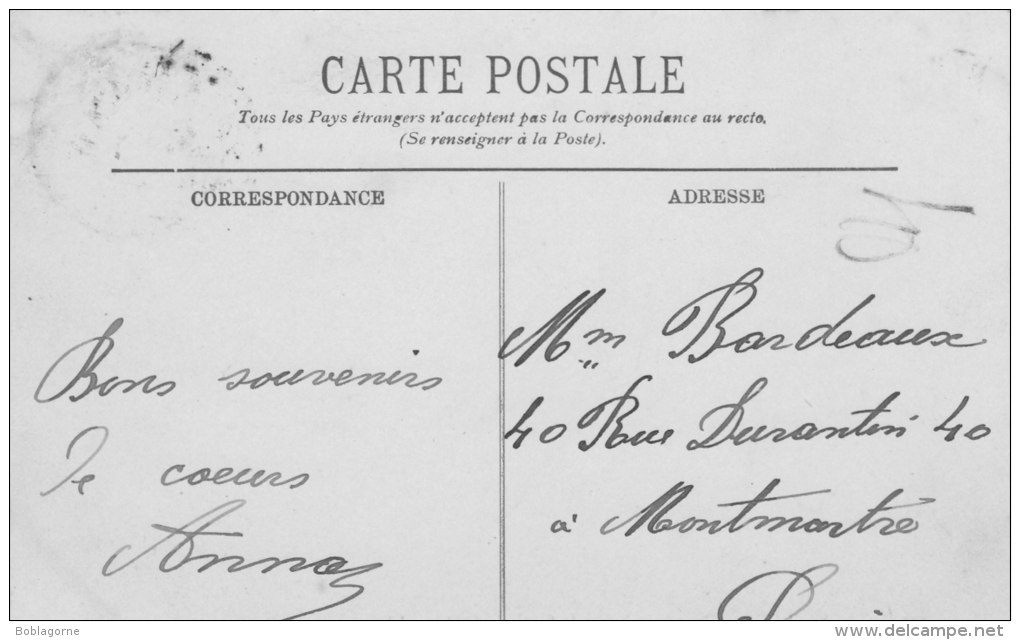 CARTE POSTALE
Tous les Pays étrangers n'acceptent pas la Correspondance au recto.
(Se renseigner à la Poste).
CORRESPONDANCE
Bons souvenirs
coeurs
Anna
ADRESSE
Mm Bardeaux
40 Rue Durantin 40
à Montmartre
Boblagorne
delcampe.net